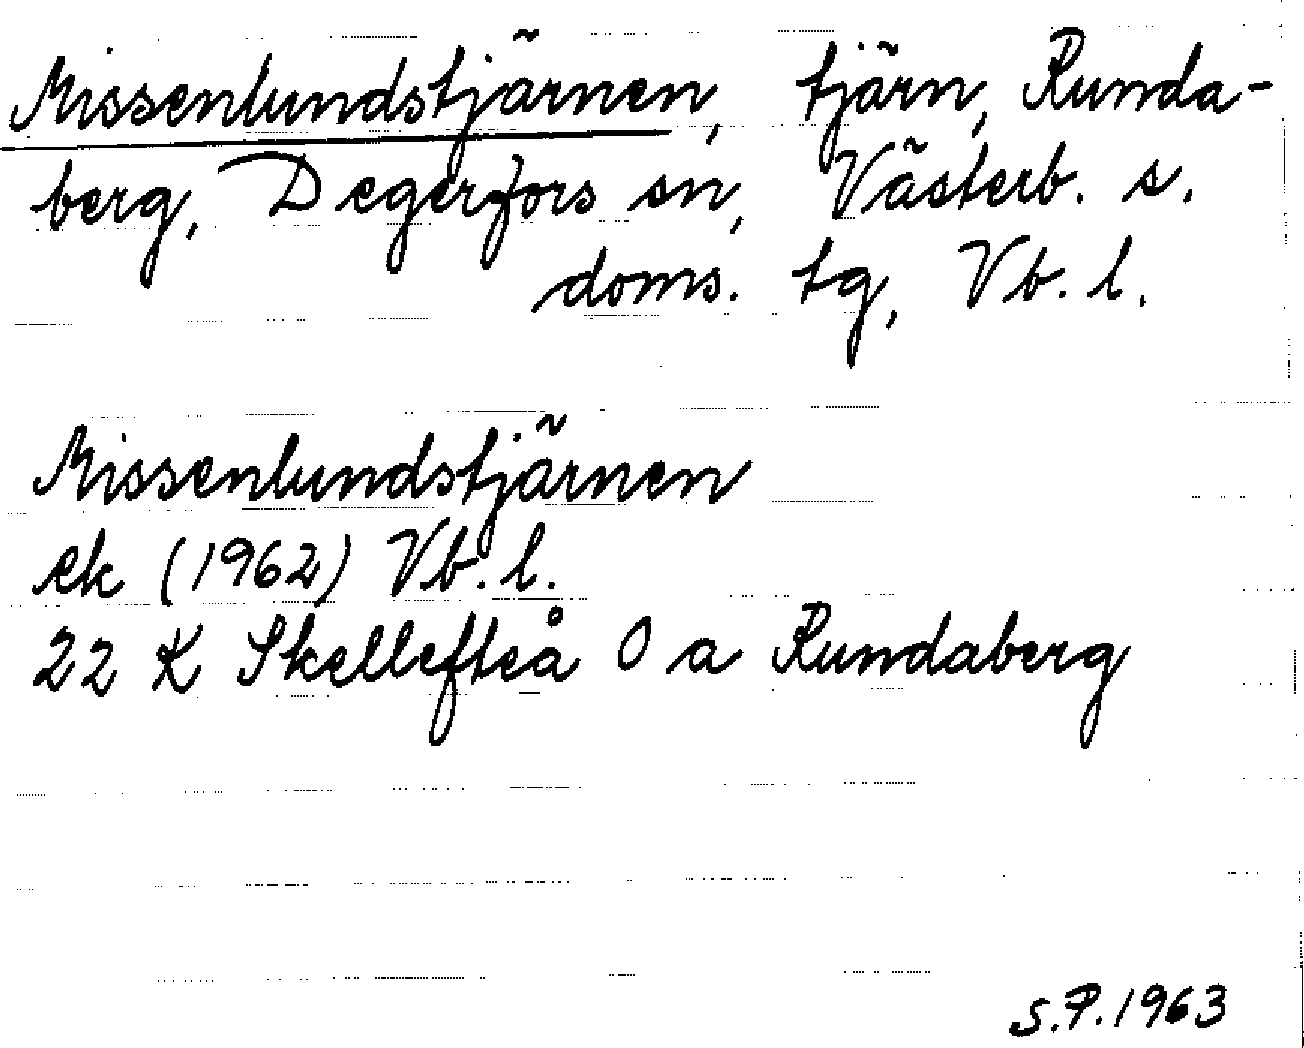 Missenlundstjärnen, tjärn, Runda-
berg, Degerfors sn, Västerb. s.
doms. tg, Vb. l.
Missenlundstjärnen
ek (1962) Vb. l.
22 K Skellefteå O a Rundaberg
S.P. 1963